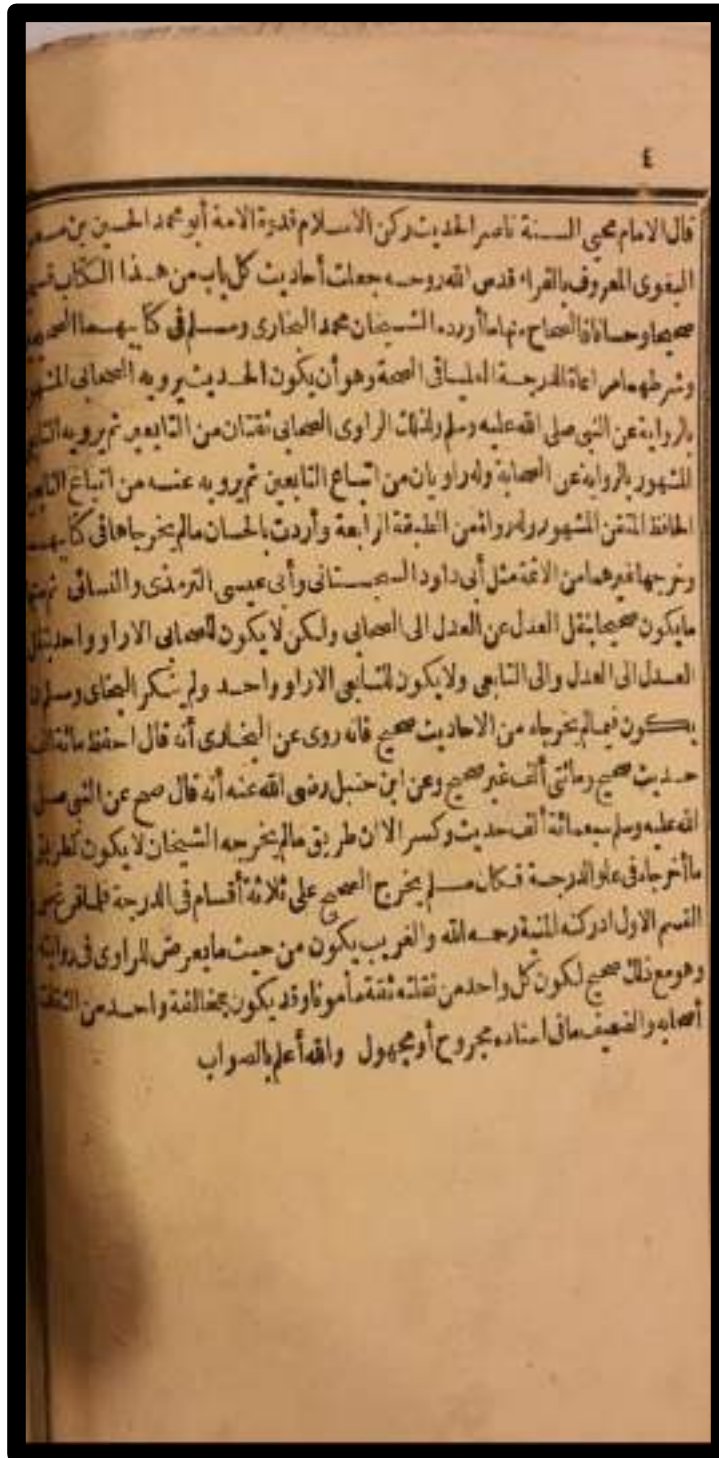 ٤
قال الامام محيي السنة ناصر الحديث ركن الاسلام قدوة الامة أبو محمد الحسين بن
البغوى المعروف بالفراء قدس الله روحه جعلت أحاديث كل باب من هذا الكتاب
صحيحا وحسانا فالصحاح منها ما أورده الشيخان محمد البخارى ومسلم فى كتابيهما
وشرطهما مراعاة الدرجة العليا فى الصحة وهو أن يكون الحديث يرويه الصحابى المشهور
بالرواية عن النبى صلى الله عليه وسلم ولذلك الراوى الصحابى ثقتان من التابعين ثم يرويه
المشهور بالرواية عن الصحابة وله راويان من اتباع التابعين ثم يرويه عنه من اتباع
الحافظ المتقن المشهور وله رواة من الطبقة الرابعة وأردت بالحسان مالم يخرجاها فى
وخرجها غيرهما من الائمة مثل أبى داود السجستانى وأبى عيسى الترمذى والنسائى ثم منها
مايكون صحيحا بنقل العدل عن العدل الى الصحابى ولكن لا يكون للصحابى الاراو واحد
العدل الى العدل والى التابعى ولا يكون للتابعى الاراو واحد ولم ينكر
يكون فيمالم يخرجاه من الاحاديث صحيح فانه روى عن البخارى أنه قال احفظ مائة ألف
حديث صحيح ومائتى ألف غير صحيح وعن ابن حنبل رضى الله عنه أنه قال صح عن النبى صلى
الله عليه وسلم سبعمائة ألف حديث وكسر الا ان طريق مالم يخرجه الشيخان لا يكون كطريق
ماأخرجاه فى علو الدرجة فكان مسلم يخرج الصحيح على ثلاثة أقسام فى الدرجة فلما فرغ
القسم الاول ادركته المنية رحمه الله والغريب يكون من حيث مايعرض للراوى فى روايته
وهو مع ذلك صحيح لكون كل واحد من نقلته ثقة مأمونا وقد يكون بمخالفة واحد من الثقات
أصحابه والضعيف مافى اسناده مجروح أو مجهول والله أعلم بالصواب